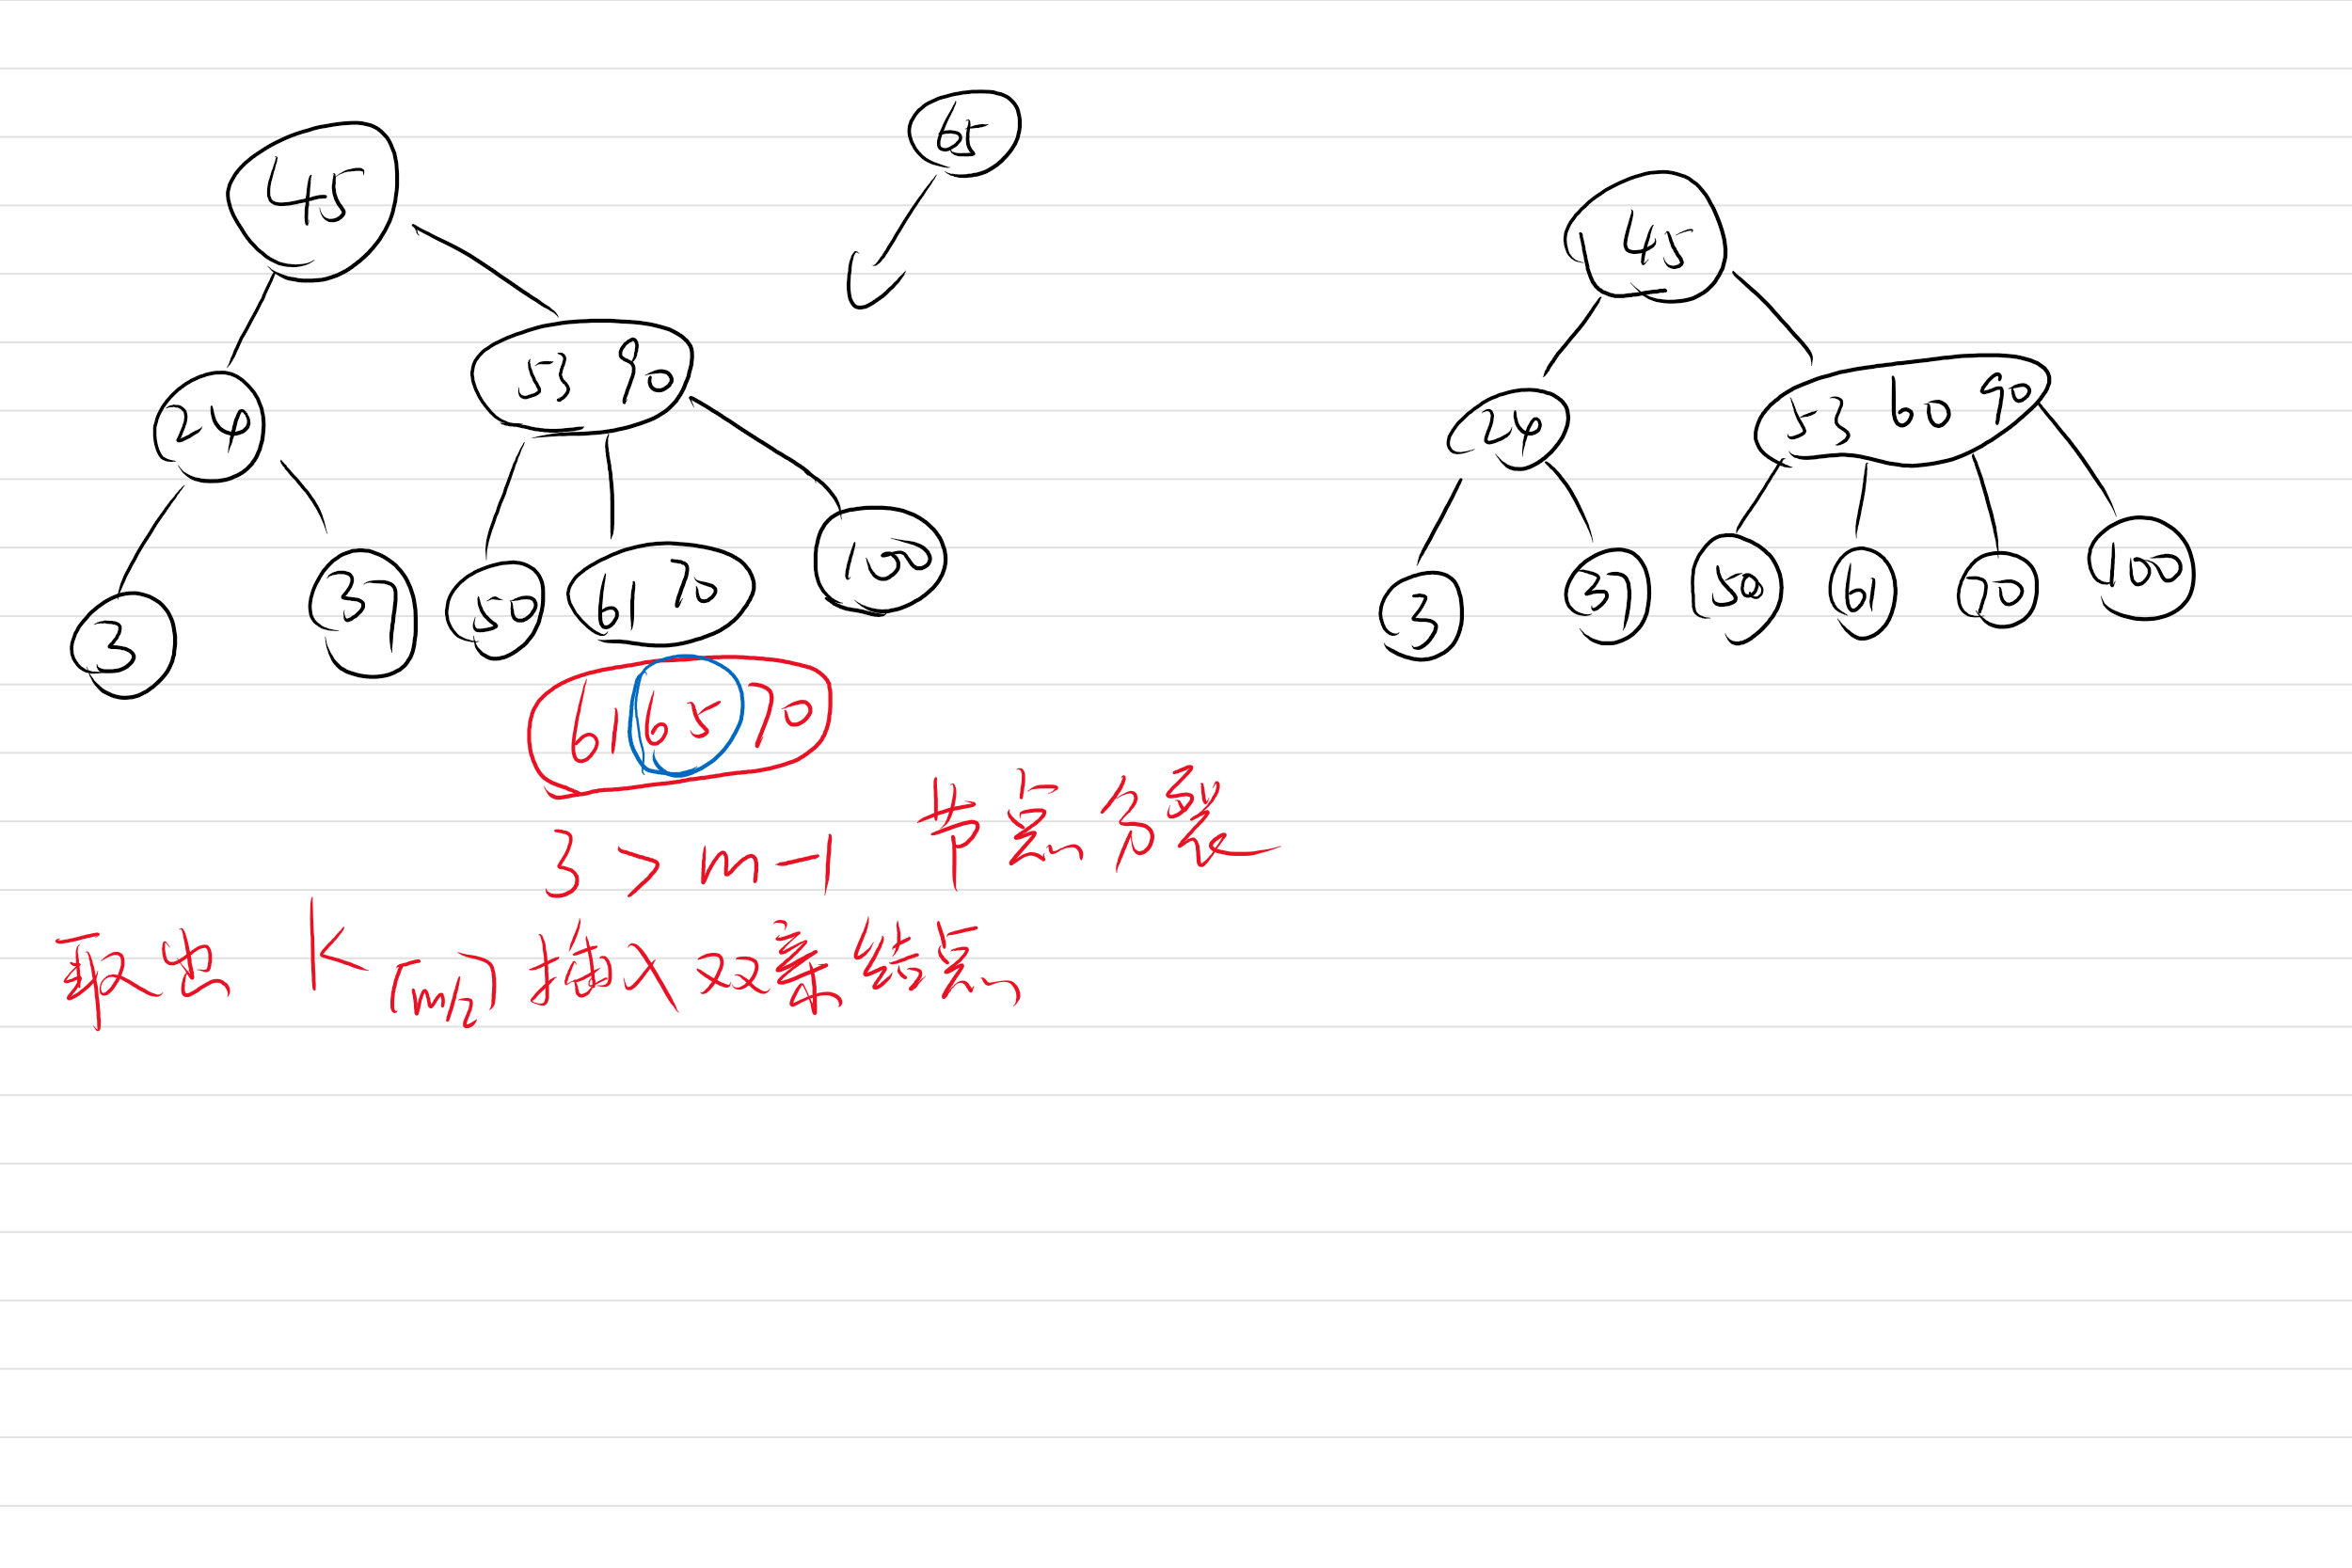 45
24
53 90
3
37
50
61 70
100
65
61 65 70
3 > m-1 节点分裂
取出 k⌈m/2⌉ 插入双亲结点
45
24
53 60 90
3
37
50
61
70
100